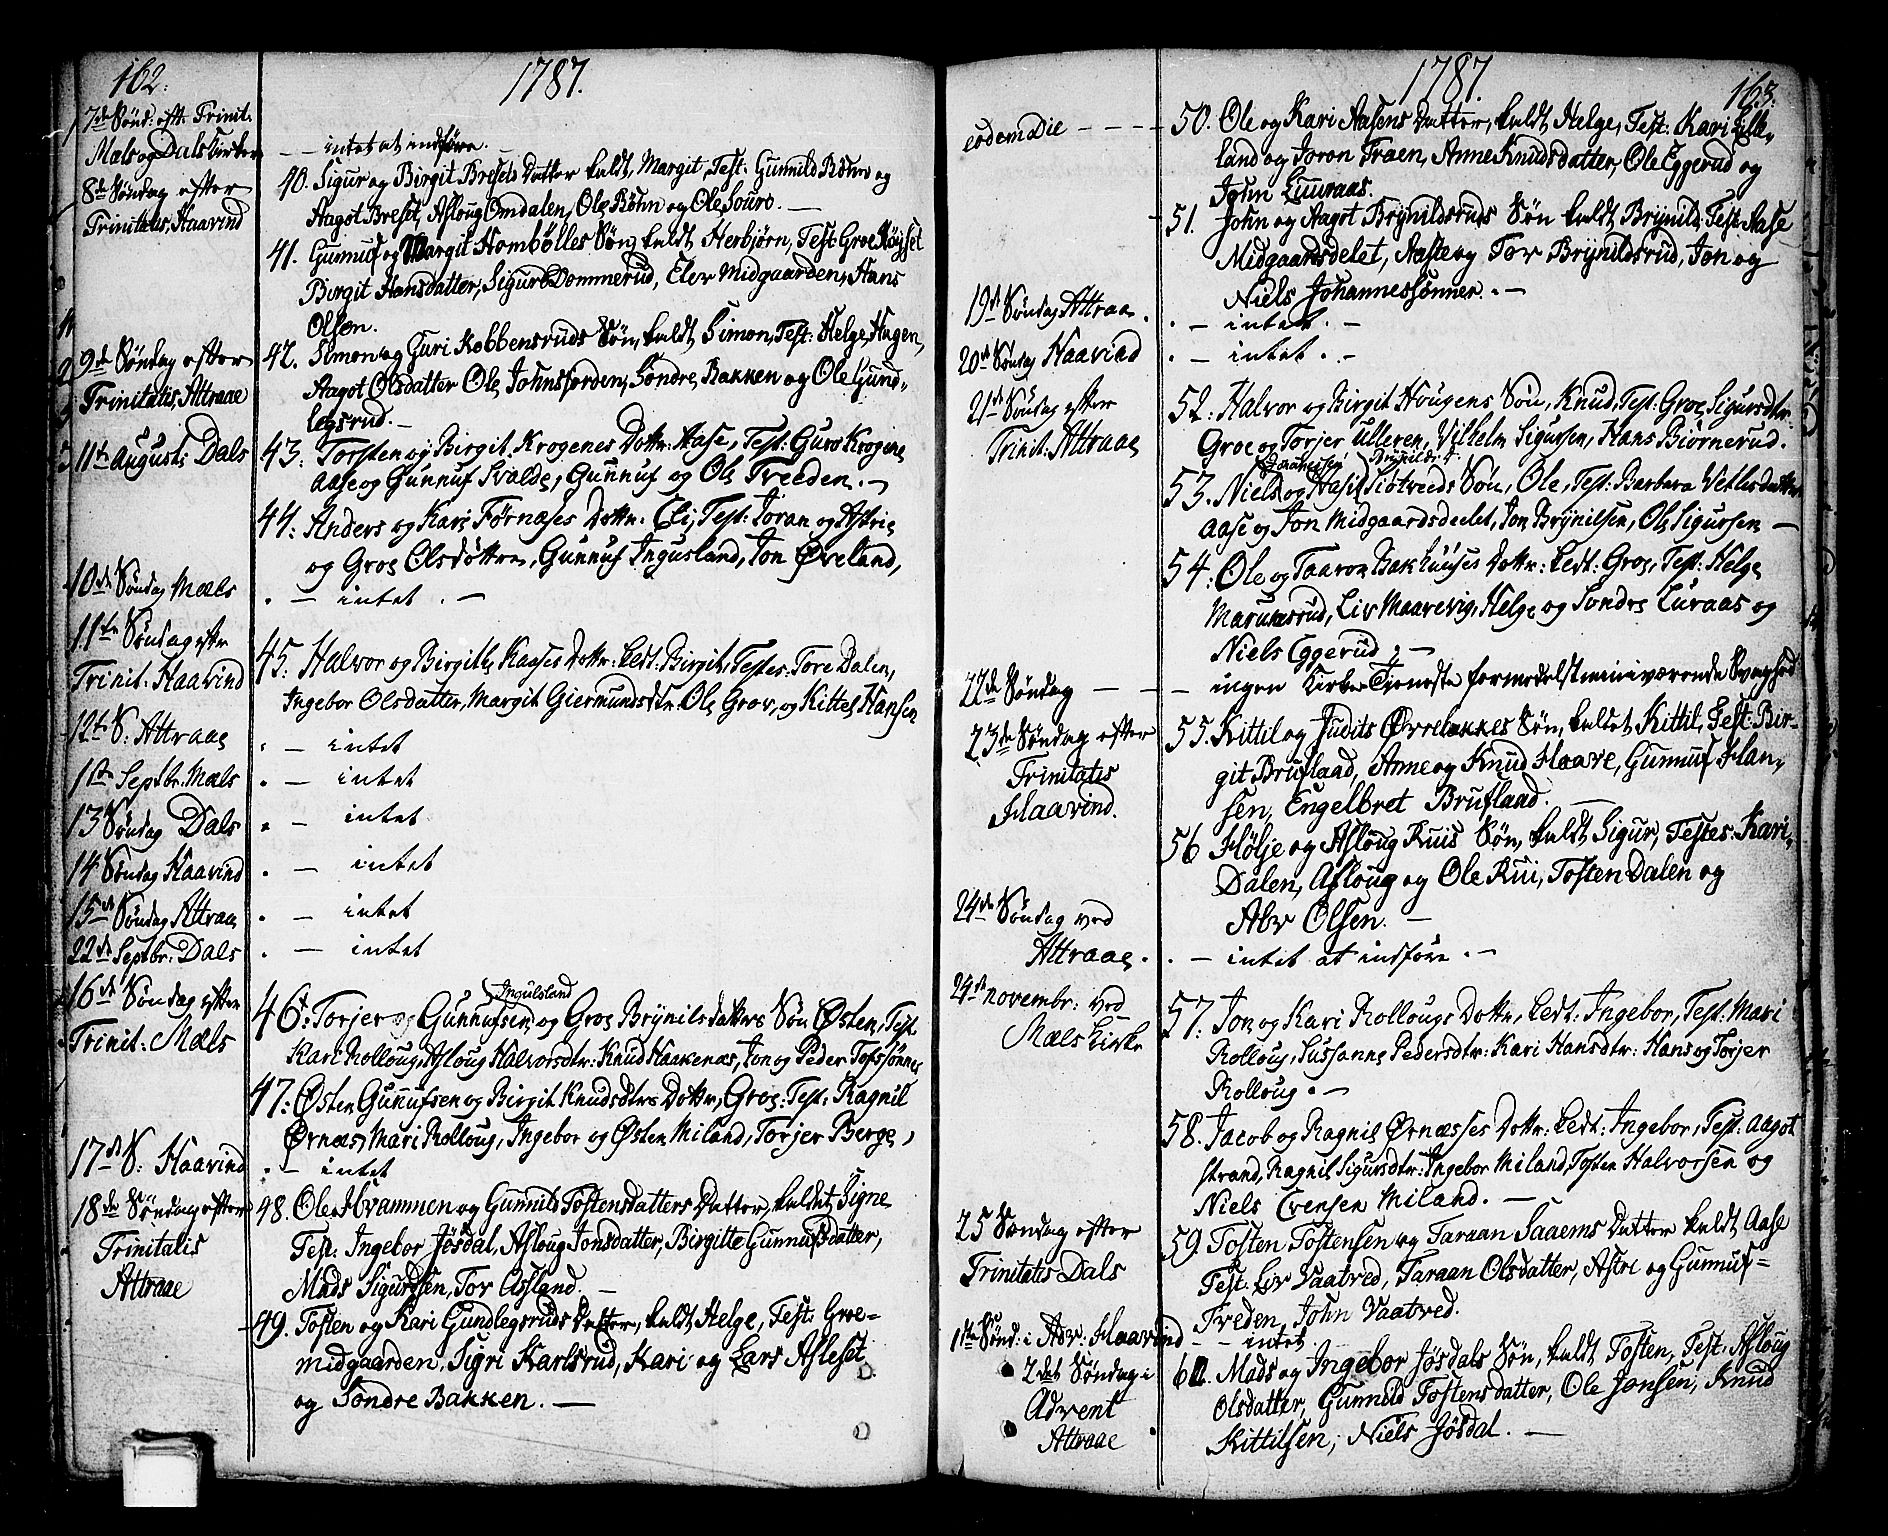 162.
1787.
7de Sønd: eft: Trinit.
Mæls og Dals Kirker - - intet at indføre. -
8de Søndag efter
Trinitatis, Haavind
40. Sigur og Birgit Bresets Datter kaldt, Margit, Test: Gunnild Böhn og
Aagot Breset, Asloug Omdalen, Ole Böhn og Ole Souro. -
41. Gunnuf og Margit Hombölles Søn, kaldt Herbjörn, Test: Groe Höyset
Birgit Hansdatter, Sigur Dommerud, Elev Midgaarden, Hans
Olsen.
9de Søndag efter
Trinitatis, Attraae
42. Simon og Guri Kobbensruds Søn, kaldt Simon, Test: Helge Hagen,
Aagot Olsdatter Ole Johnsjorden, Söndre Bakken og Ole Gund-
legsrud. -
11te Augusti Dals
43: Torsten og Birgit Krogenes Dottr: Aase, Test: Guro Krogene
Aase og Gunnuf Svalde, Gunnuf og Ole Treeden. -
44: Anders og Kari Førnæses Dottr: Eli, Test: Joran og Astrie
og Groe Olsdøttre, Gunnuf Ingusland, Jon Øveland,
10de Søndag Mæls . - intet . -
11te Søndag eftr
Trinit: Haavind
45. Halvor og Birgitte Kaases Dottr: kedt: Birgit, Testes: Tore Dalen,
Ingebor Olsdatter, Margit Giermundsdtr: Ole Grov, og Kittel Hansen
12te S: Attraae . - intet
1ste Septbr: Mæls . - intet
13 Søndag Dals . - intet
14 Søndag Haavind . - intet
15de Søndag Attraae . - intet
22de Septbr. Dals . - intet
16de Søndag efter
Trinit: Mæls
Ingulsland
46: Torjer og Gunnufsen og Groe Brÿnilsdatters Søn Østen, Test
Kari Rolloug, Asloug Halvorsdtr: Knud Haakenæs, Jon og Peder Tofssønner
47: Østen Gunufsen og Birgit Knudsdtrs Dottr, Groe: Test: Ragnil
Ørnæs, Mari Rolloug, Ingebor og Østen Miland, Torjer Berge,
17de S: Haavind . - intet
18de Søndag efter
Trinitatis
Attraae
48. Ole Hvammen og Gunnild Tostensdatters Datter, kaldet Signe
Test: Ingebor Jösdal, Asloug Jonsdatter, Birgitte Gunnufsdatter,
Mads Sigurdsen, Tor Aasland. -
49. Tosten og Kari Gundlegsruds Datter, kaldt Helge, Test: Groe-
Midgaarden, Sigri Karlsrud, Kari og Lars Asleset
og Söndre Bakken. -
163.
1787.
eodem Die - - - -
50. Ole og Kari Aasens Datter, kaldt Helge, Test: Kari Lille-
land og Joron Traen, Anne Knudsdatter, Ole Eggerud og
John Luuraas.
51. John og Aagot Brÿnildsruds Søn kaldt Brÿnild, Test: Aase
Midgaardsdelet, Aaste og Tov Brÿnildsrud, Jon og
Niels Johannessønner. -
19de Søndag Attraa . . - intet . -
20de Søndag Haavind . - intet . -
21de Søndag efter
Trinit: Attraae
52. Halvor og Birgit Hougens Søn, Knud, Test: Groe Sigursdtr
Groe og Torjer Ulleren, Vilhelm Sigursen, Hans Biørnerud.
53. Niels og Aase Siotveeds Søn, Ole, Test: Barbara Vetlesdatter
Aase og Jon Midgaardsdeelet, Jon Brÿnilsen, Ole Sigursen -
54: Ole og Taaron Bakhuuses Dottr: kedt: Groe, Test: Helge
Marumsrud, Liv Maarevig, Helge og Sondre Luraas og
Niels Eggerud, -
22de Søndag - - - ingen Kirke Tjeneste formedelst min iværende Svaghed
23de Søndag efter
Trinitatis
Haavind.
55. Kittil og Judits Øvrebøkkes Søn, kaldet Kittil, Test: Bir-
git Brufland, Anne og Knud Haare, Gunnuf Han-
sen, Engelbret Brufland. -
56 Hølje og Asloug Ruis Søn, kaldt Sigur, Testes: Kari
Dalen, Asloug og Ole Rui, Tosten Dalen og
Abr Olsen. -
24de Søndag ved
Attraae . . - intet at indføre . -
24de Novembr: ved
Mæls Kirke
57. Jon og Kari Rollougs Dottr, kedt: Ingebor, Test: Mari
Rolloug, Sussanne Pedersdtr: Kari Hansdtr: Hans og Torjer
Rolloug . -
58. Jacob og Ragnil Ørnæsses Dottr: kedt: Ingebor, Test: Aagot
Strand, Ragnil Sigursdtr: Ingebor Miland, Tosten Halvorsen og
Niels Evensen Miland. -
25 Søndag efter
Trinitatis Dals
59. Tosten Tostensen og Taraan Saaems Datter kaldt Aase
Test: Liv Vaatved, Taraan Olsdatter, Astri og Gunnuf-
Treden, John Vaatved.
1ste Sønd: i Adv: Haavind - - intet -
2det Søndag i
Advent
Attraae
60. Mads og Ingebor Jösdals Søn, kaldt Tosten, Test: Asloug
Olsdatter, Gunnild Tostensdatter, Ole Jonsen, Knud
Kittilsen, Niels Jösdal. -